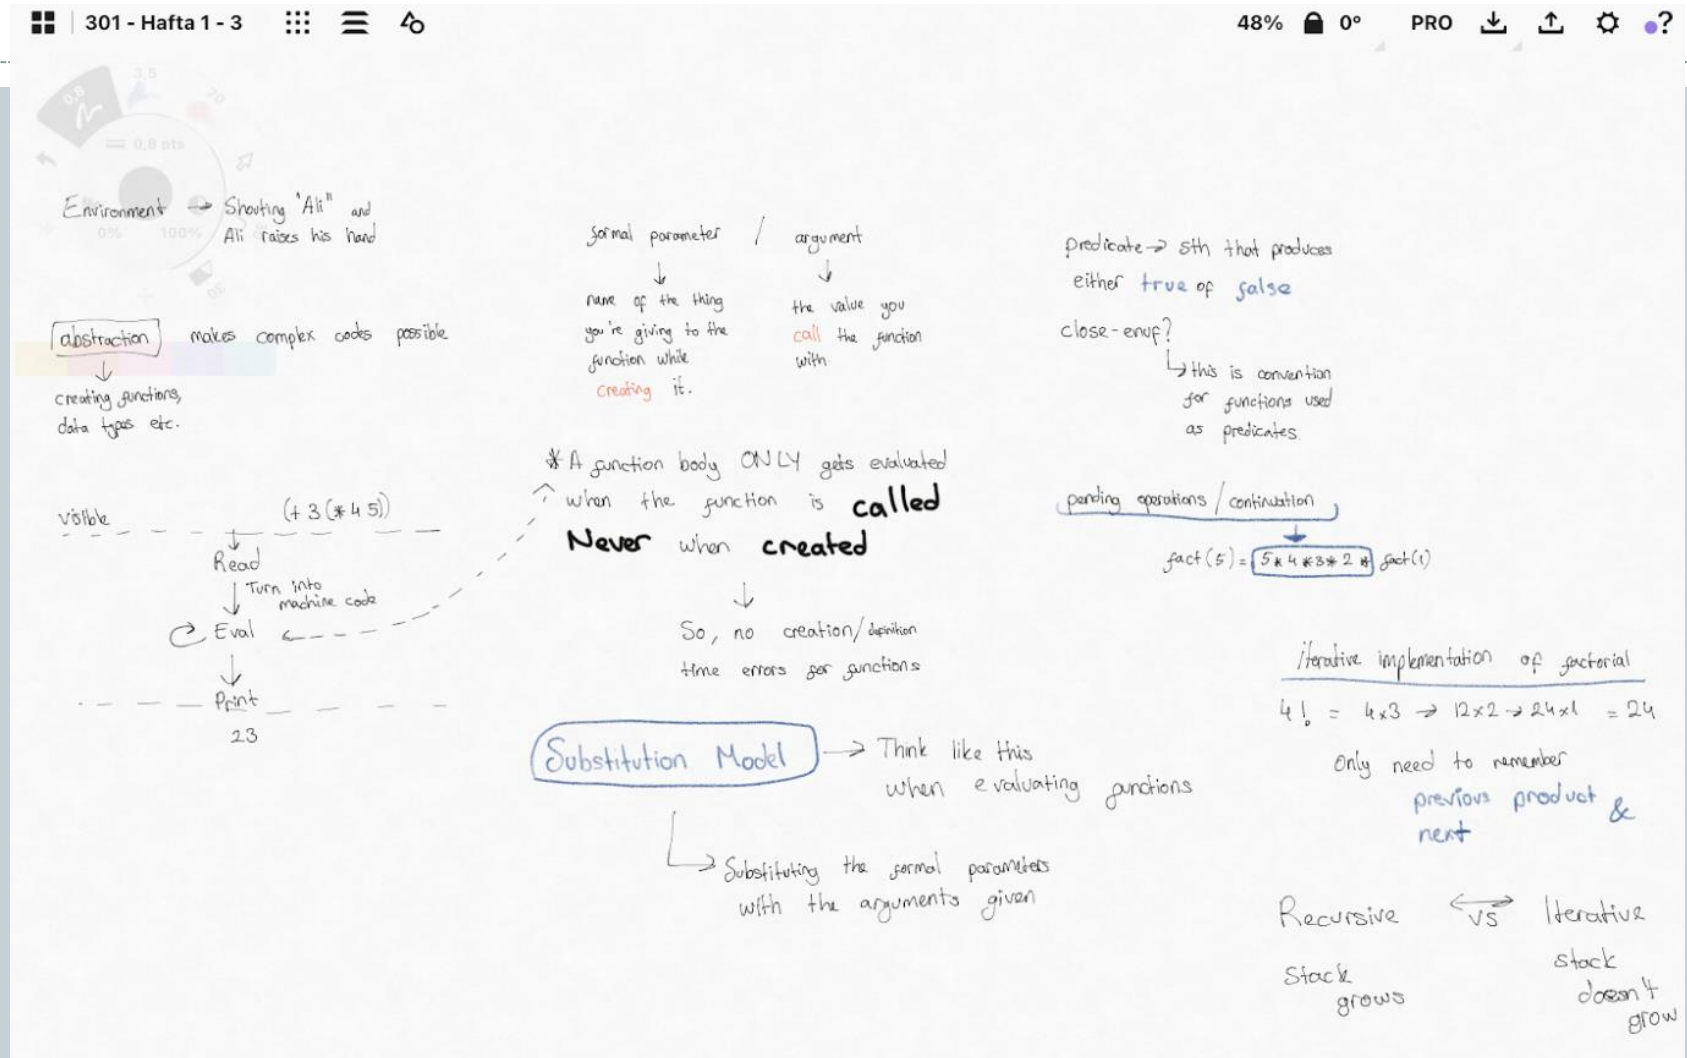 301 - Hafta 1 - 3
48%
0°
PRO
?
0,8
3,5
20
0,8 pts
0%
100%
Environment → Shouting "Ali" and
Ali raises his hand
abstraction makes complex codes possible
↓
creating functions,
data types etc.
visible (+ 3 (* 4 5))
Read
Turn into
machine code
Eval
Print
23
formal parameter / argument
name of the thing
you're giving to the
function while
creating it.
the value you
call the function
with
* A function body ONLY gets evaluated
when the function is called
Never when created
↓
So, no creation/definition
time errors for functions
Substitution Model → Think like this
when evaluating functions
Substituting the formal parameters
with the arguments given
predicate → sth that produces
either true of false
close-enuf?
this is convention
for functions used
as predicates.
pending operations / continuation
fact(5) = 5*4*3*2* fact(1)
iterative implementation of factorial
4! = 4x3 → 12x2 → 24x1 = 24
Only need to remember
previous product &
next
Recursive vs Iterative
Stack
grows
stack
doesn't
grow